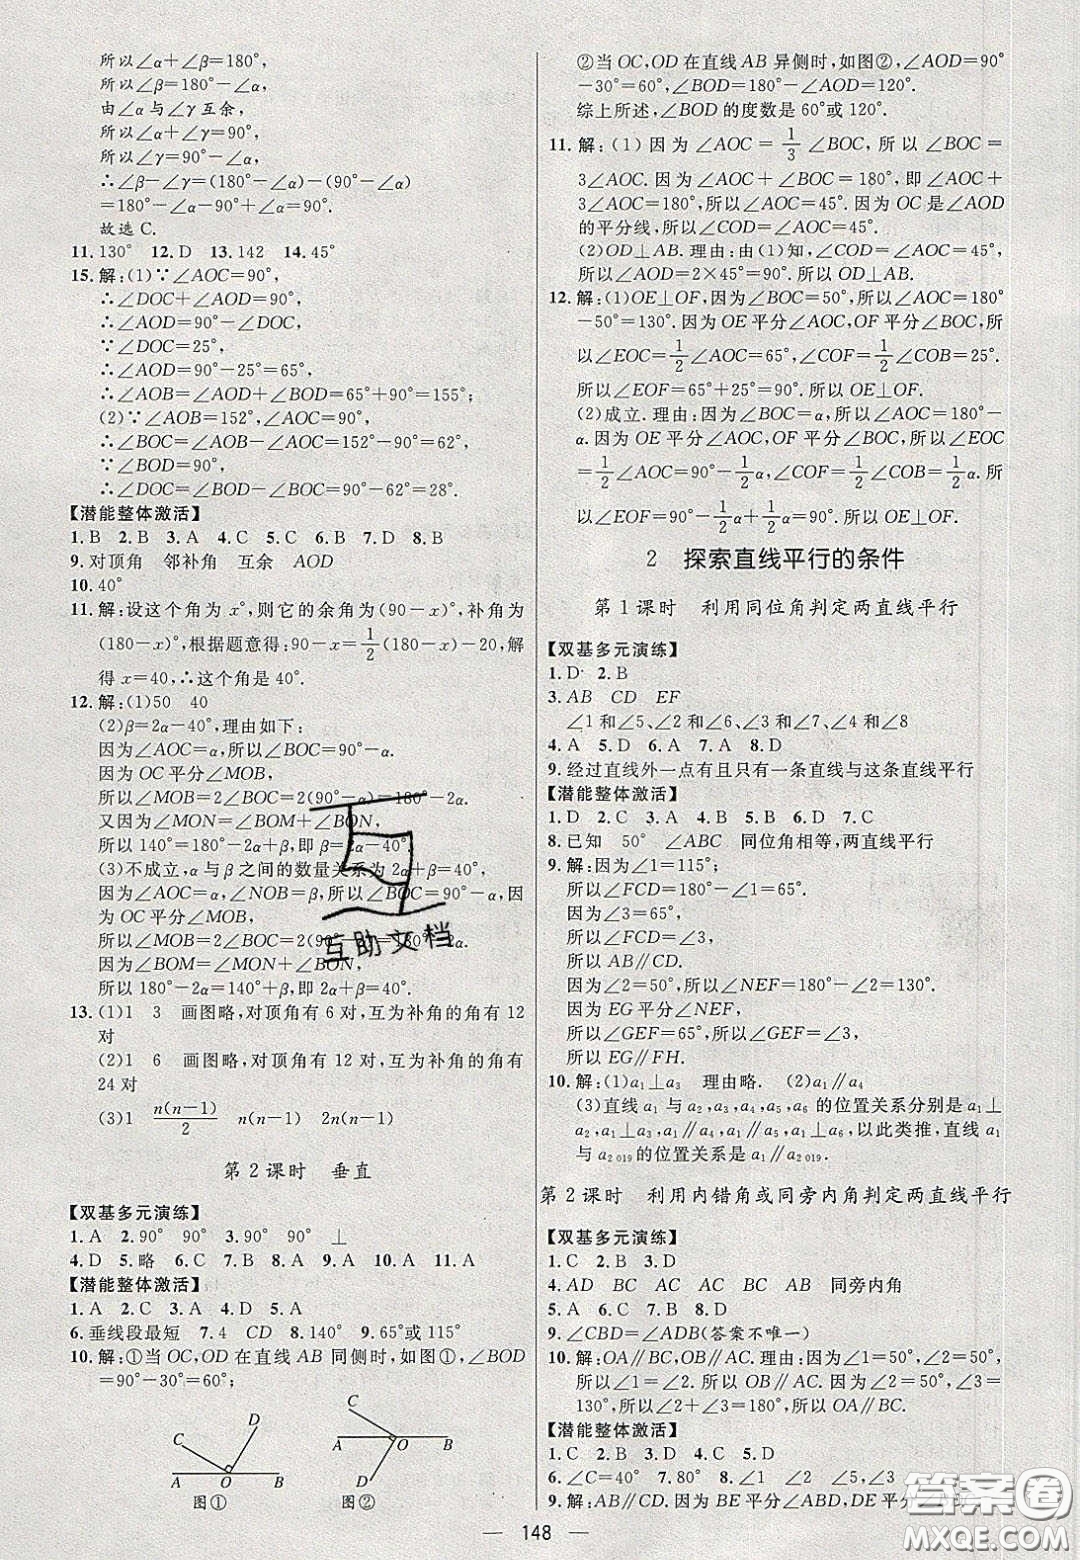 所以∠α+∠β=180°,
所以∠β=180°-∠α.
由∠α与∠γ互余,
所以∠α+∠γ=90°,
所以∠γ=90°-∠α.
∴∠β-∠γ=(180°-∠α)-(90°-∠α)
=180°-∠α-90°+∠α=90°.
故选C.
11.130° 12.D 13.142 14.45°
15.解:(1)∵∠AOC=90°,
∴∠DOC+∠AOD=90°,
∴∠AOD=90°-∠DOC,
∵∠DOC=25°,
∴∠AOD=90°-25°=65°,
∴∠AOB=∠AOD+∠BOD=65°+90°=155°;
(2)∵∠AOB=152°,∠AOC=90°,
∴∠BOC=∠AOB-∠AOC=152°-90°=62°,
∵∠BOD=90°,
∴∠DOC=∠BOD-∠BOC=90°-62°=28°.
【潜能整体激活】
1.B 2.B 3.A 4.C 5.C 6.B 7.D 8.B
9.对顶角 邻补角 互余 AOD
10.40°
11.解:设这个角为x°,则它的余角为(90-x)°,补角为
(180-x)°,根据题意得:90-x=1/2(180-x)-20,解
得x=40,∴这个角是40°.
12.解:(1)50 40
(2)β=2α-40°,理由如下:
因为∠AOC=α,所以∠BOC=90°-α.
因为OC平分∠MOB,
所以∠MOB=2∠BOC=2(90°-α)=180°-2α.
又因为∠MON=∠BOM+∠BON,
所以140°=180°-2α+β,即β=2α-40°.
(3)不成立,α与β之间的数量关系为2α+β=40°,
因为∠AOC=α,∠NOB=β,所以∠BOC=90°-α,因
为OC平分∠MOB,
所以∠MOB=2∠BOC=2(90°-α)=180°-2α.
因为∠BOM=∠MON+∠BON,
所以180°-2α=140°+β,即2α+β=40°.
13.(1)1 3 画图略,对顶角有6对,互为补角的角有12
对
(2)1 6 画图略,对顶角有12对,互为补角的角有
24对
(3)1 n(n-1)/2 n(n-1) 2n(n-1)
第2课时 垂直
【双基多元演练】
1.A 2.90° 90° 3.90° 90° ⊥
4.D 5.略 6.C 7.B 8.A 9.A 10.A 11.A
【潜能整体激活】
1.A 2.C 3.A 4.D 5.A
6.垂线段最短 7.4 CD 8.140° 9.65°或115°
10.解:①当OC,OD在直线AB同侧时,如图①,∠BOD
=90°-30°=60°;
C D A O B
图①
C A O B D
图②
②当OC,OD在直线AB异侧时,如图②,∠AOD=90°
-30°=60°,∠BOD=180°-∠AOD=120°.
综上所述,∠BOD的度数是60°或120°.
11.解:(1)因为∠AOC=1/3∠BOC,所以∠BOC=
3∠AOC.因为∠AOC+∠BOC=180°,即∠AOC+
3∠AOC=180°,所以∠AOC=45°.因为OC是∠AOD
的平分线,所以∠COD=∠AOC=45°.
(2)OD⊥AB.理由:由(1)知,∠COD=∠AOC=45°,
所以∠AOD=2×45°=90°.所以OD⊥AB.
12.解:(1)OE⊥OF,因为∠BOC=50°,所以∠AOC=180°
-50°=130°.因为OE平分∠AOC,OF平分∠BOC,所
以∠EOC=1/2∠AOC=65°,∠COF=1/2∠COB=25°.
所以∠EOF=65°+25°=90°.所以OE⊥OF.
(2)成立.理由:因为∠BOC=α,所以∠AOC=180°-
α.因为OE平分∠AOC,OF平分∠BOC,所以∠EOC
=1/2∠AOC=90°-1/2α,∠COF=1/2∠COB=1/2α.所
以∠EOF=90°-1/2α+1/2α=90°.所以OE⊥OF.
2 探索直线平行的条件
第1课时 利用同位角判定两直线平行
【双基多元演练】
1.D 2.B
3.AB CD EF
∠1和∠5、∠2和∠6、∠3和∠7、∠4和∠8
4.A 5.D 6.A 7.A 8.D
9.经过直线外一点有且只有一条直线与这条直线平行
【潜能整体激活】
1.D 2.C 3.A 4.B 5.B 6.D 7.C
8.已知 50° ∠ABC 同位角相等,两直线平行
9.解:因为∠1=115°;
所以∠FCD=180°-∠1=65°.
因为∠3=65°,
所以∠FCD=∠3,
所以AB∥CD.
因为∠2=50°,所以∠NEF=180°-∠2=130°.
因为EG平分∠NEF,
所以∠GEF=65°,所以∠GEF=∠3,
所以EG∥FH.
10.解:(1)a1⊥a3 理由略. (2)a1∥a4
(3)直线a1与a2,a3,a4,a5,a6的位置关系分别是a1⊥
a2,a1⊥a3,a1∥a4,a1∥a5,a1⊥a6,以此类推,直线a1
与a2 019的位置关系是a1⊥a2 019.
第2课时 利用内错角或同旁内角判定两直线平行
【双基多元演练】
1.C 2.B 3.D
4.AD BC AC BC AB 同旁内角
5.A 6.A 7.B 8.D
9.∠CBD=∠ADB(答案不唯一)
10.解:OA∥BC,OB∥AC.理由:因为∠1=50°,∠2=50°,
所以∠1=∠2.所以OB∥AC.因为∠2=50°,∠3=
130°,所以∠2+∠3=180°,所以OA∥BC.
【潜能整体激活】
1.C 2.B 3.D 4.C 5.D
6.∠C=40° 7.80° 8.∠1 ∠2
9.解:AB∥CD.因为BE平分∠ABD,DE平分
— 148 —
互助文档
答案圈
MXQE.COM